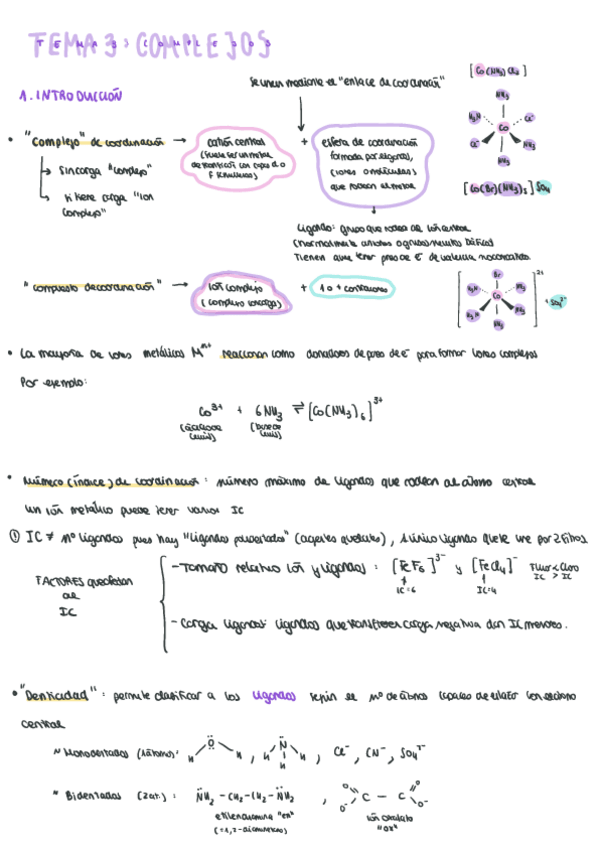 TEMA 3: COMPLEJOS
Se unen mediante el "enlace de coordinación"
[Co(NH₃)Cl₂]
1. INTRODUCCIÓN
• "Complejo" de coordinación → catión central + esfera de coordinación
(suele ser un metal de transición con capas d o f semillenas)
formada por ligandos, (iones o moléculas) que rodean al metal
↳ sin carga "complejo"
↳ si tiene carga "ion complejo"
NH₃
H₃N Cl⁻
Co
Cl⁻ NH₃
NH₃
[Co(Br)(NH₃)₅]SO₄
Ligando: grupo que rodea al ión central
(normalmente aniones o grupos neutros básicos)
Tienen que tener pares de e⁻ de valencia no compartidos
"compuesto de coordinación" → Ión complejo + 1 o + contraiones
(complejo con carga)
Br
H₃N NH₃
Co
H₃N NH₃
NH₃
2+
+ SO₄²⁻
• La mayoría de iones metálicos Mⁿ⁺ reaccionan como donadores de pares de e⁻ para formar iones complejos
Por ejemplo:
Co³⁺ + 6NH₃ ⇌ [Co(NH₃)₆]³⁺
(ácido de Lewis) (base de Lewis)
• Número (índice) de coordinación: número máximo de ligandos que rodean al átomo central
Un ión metálico puede tener varios IC
① IC ≠ nº ligandos pues hay "ligandos polidentados" (agentes quelatos), 1 único ligando que se une por 2 sitios.
FACTORES que afectan al IC
– Tamaño relativo ión y ligandos: [FeF₆]³⁻ y [FeCl₄]⁻ Fluor < Cloro
IC=6 IC=4 IC > IC
– Carga ligandos: ligandos que transfieren carga negativa dan IC menores.
• "Denticidad": permite clasificar a los ligandos según el nº de átomos capaces de enlazar con el átomo
central
~ Monodentados (1 átomo): H Ö H, H N H H, Cl⁻, CN⁻, SO₄²⁻
~ Bidentados (2 at.): N̈H₂ – CH₂ – CH₂ – N̈H₂, O O⁻ C – C O O⁻
etilendiamina "en" ión oxalato
(=1,2-diaminoetano) "ox"